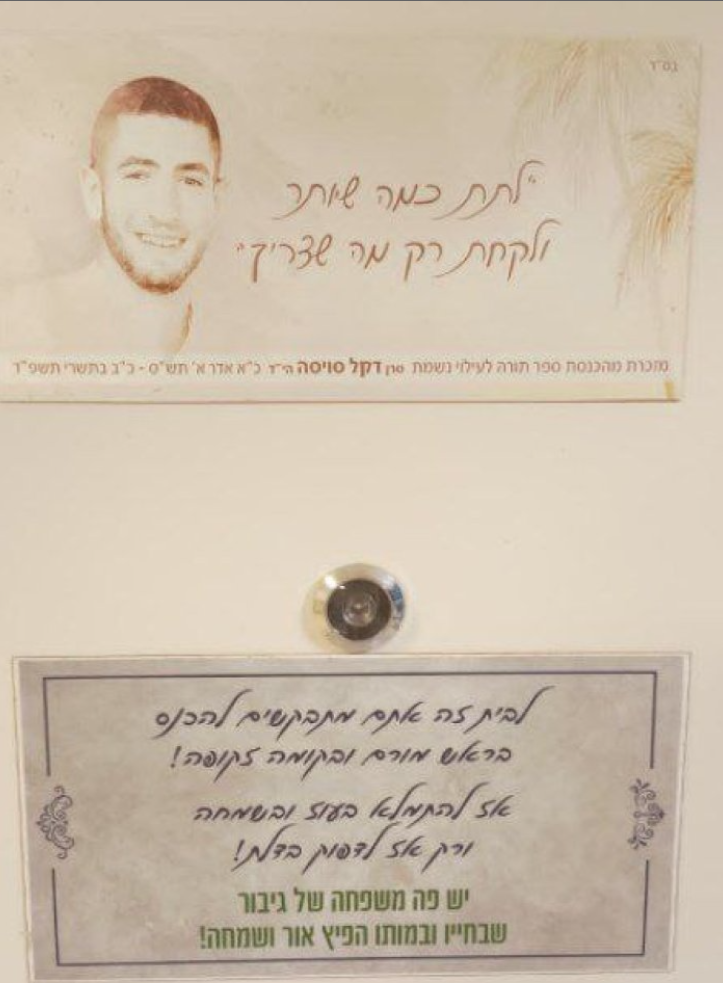 בס"ד
"לתת כמה שיותר
ולקחת רק מה שצריך"
מזכרת מהכנסת ספר תורה לעילוי נשמת סרן דקל סויסה הי"ד כ"א אדר א' תש"ס - כ"ב בתשרי תשפ"ד
לבית זה אתם מתבקשים להכנס
בראש מורם ובקומה זקופה!
אז להתמלא בעוז ובשמחה
ורק אז לדפוק בדלת!
יש פה משפחה של גיבור
שבחייו ובמותו הפיץ אור ושמחה!